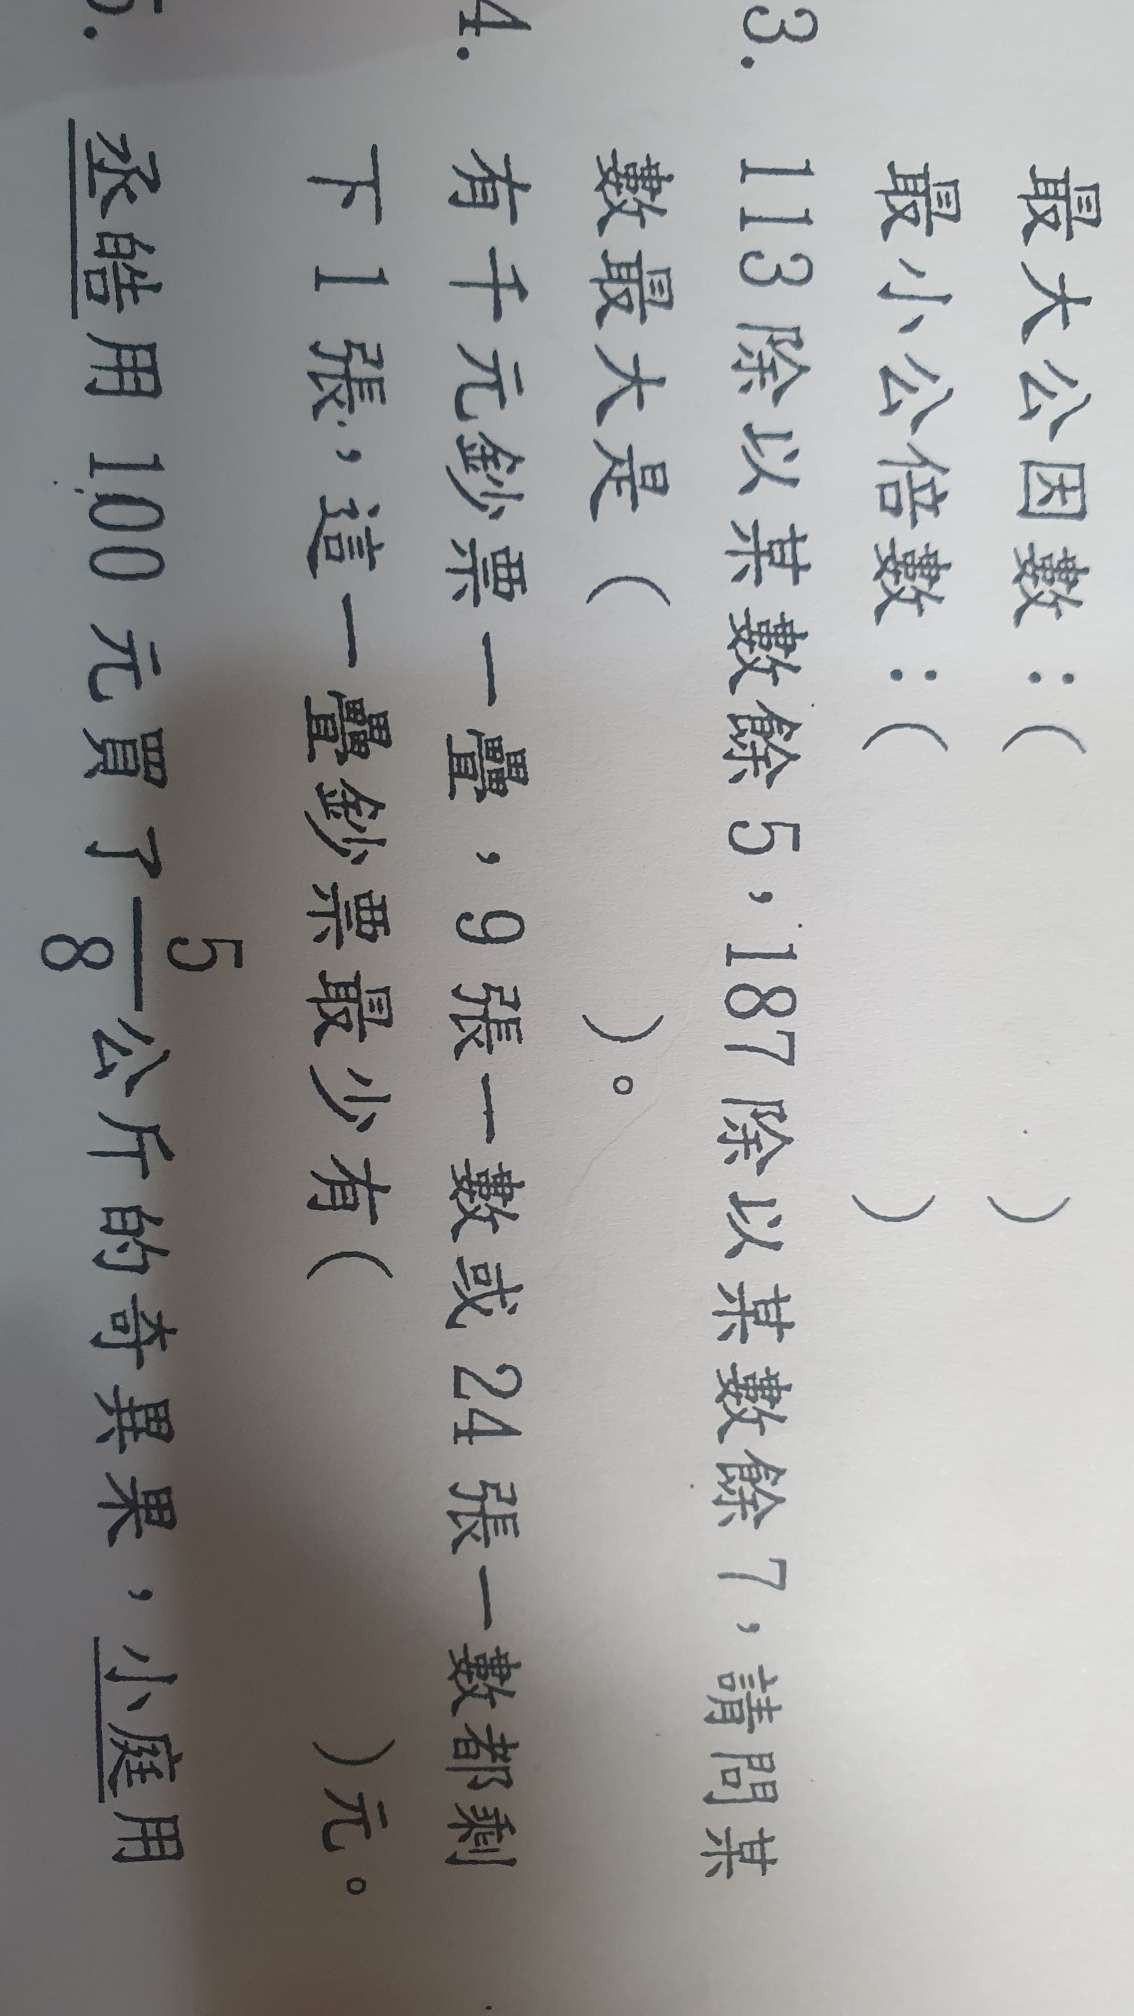 最大公因數：（　　　　）
最小公倍數：（　　　　）
3. 113 除以某數餘 5，187 除以某數餘 7，請問某
數最大是（　　　　）。
4. 有千元鈔票一疊，9 張一數或 24 張一數都剩
下 1 張，這一疊鈔票最少有（　　　　）元。
5. 丞皓用 100 元買了 5/8 公斤的奇異果，小庭用